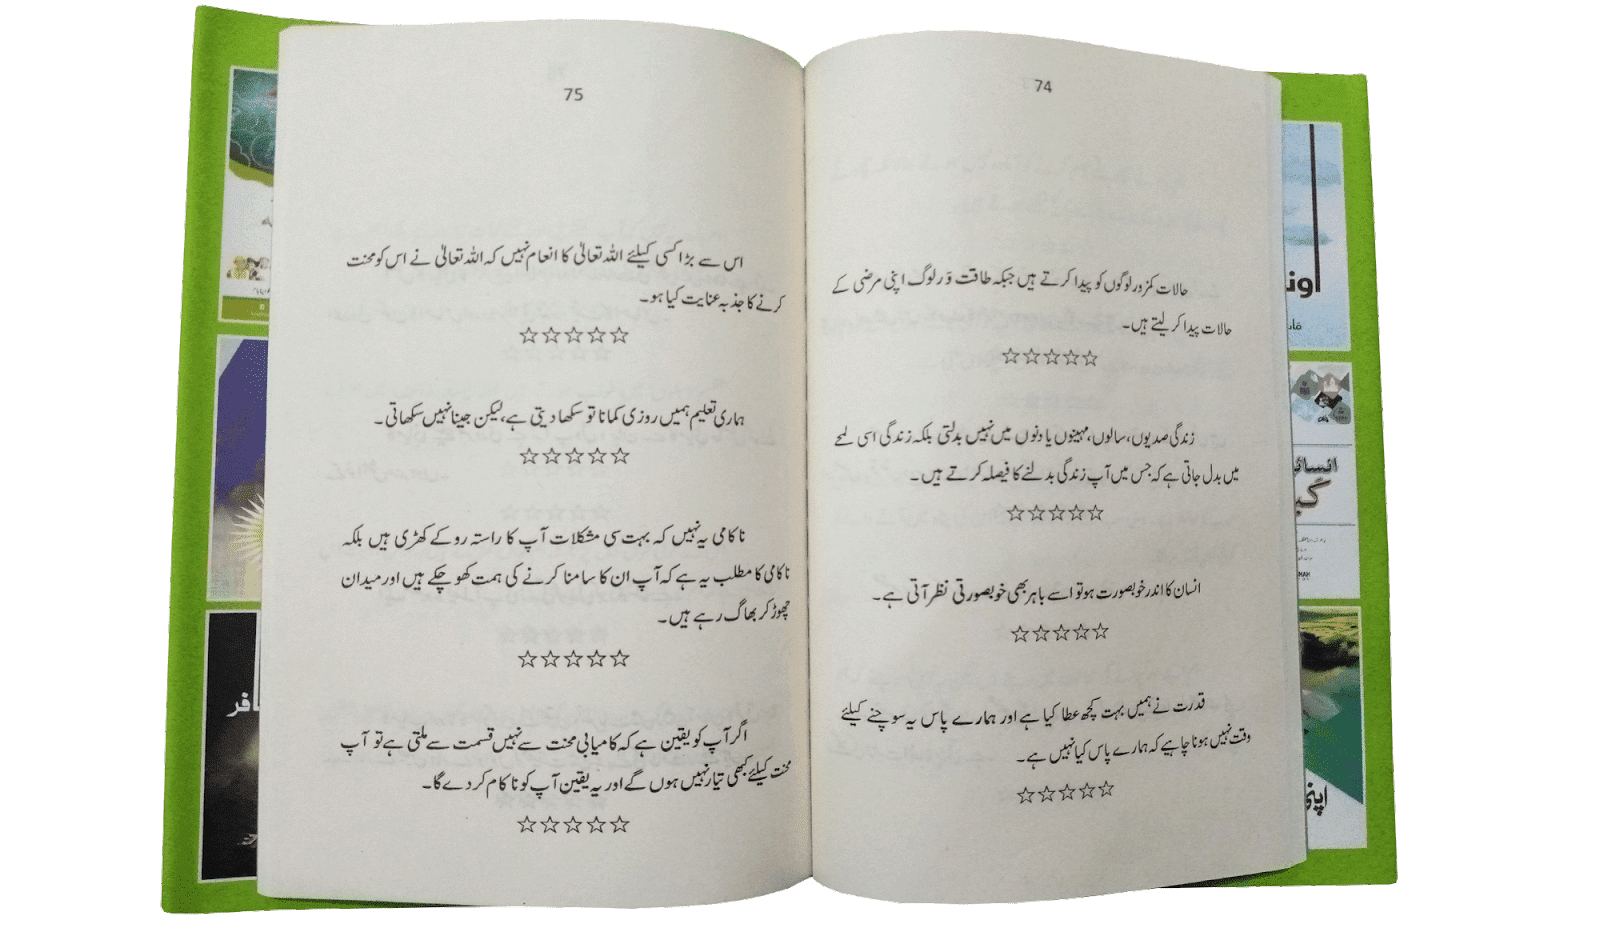 74
حالات کمزور لوگوں کو پیدا کرتے ہیں جبکہ طاقت وَر لوگ اپنی مرضی کے
حالات پیدا کر لیتے ہیں۔
☆☆☆☆☆
زندگی صدیوں، سالوں، مہینوں یا دنوں میں نہیں بدلتی بلکہ زندگی اسی لمحے
میں بدل جاتی ہے کہ جس میں آپ زندگی بدلنے کا فیصلہ کرتے ہیں۔
☆☆☆☆☆
انسان کا اندر خوبصورت ہو تو اسے باہر بھی خوبصورتی نظر آتی ہے۔
☆☆☆☆☆
قدرت نے ہمیں بہت کچھ عطا کیا ہے اور ہمارے پاس یہ سوچنے کیلئے
وقت نہیں ہونا چاہیے کہ ہمارے پاس کیا نہیں ہے۔
☆☆☆☆☆
75
اس سے بڑا کسی کیلئے اللہ تعالیٰ کا انعام نہیں کہ اللہ تعالیٰ نے اس کو محنت
کرنے کا جذبہ عنایت کیا ہو۔
☆☆☆☆☆
ہماری تعلیم ہمیں روزی کمانا تو سکھا دیتی ہے، لیکن جینا نہیں سکھاتی۔
☆☆☆☆☆
ناکامی یہ نہیں کہ بہت سی مشکلات آپ کا راستہ روکے کھڑی ہیں بلکہ
ناکامی کا مطلب یہ ہے کہ آپ ان کا سامنا کرنے کی ہمت کھو چکے ہیں اور میدان
چھوڑ کر بھاگ رہے ہیں۔
☆☆☆☆☆
اگر آپ کو یقین ہے کہ کامیابی محنت سے نہیں قسمت سے ملتی ہے تو آپ
محنت کیلئے کبھی تیار نہیں ہوں گے اور یہ یقین آپ کو ناکام کر دے گا۔
☆☆☆☆☆